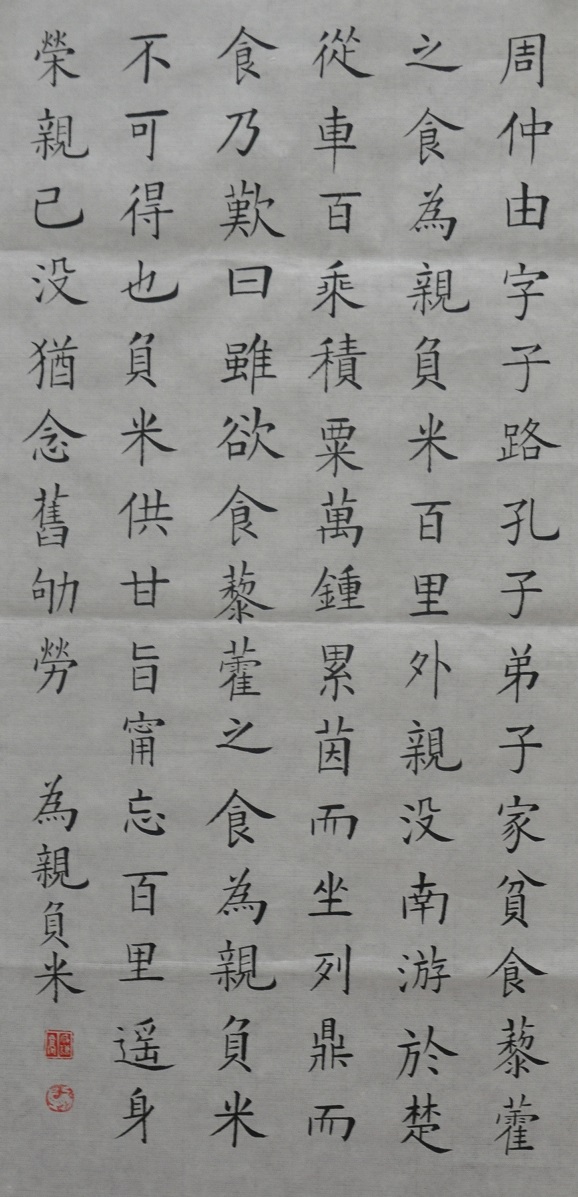 周仲由字子路孔子弟子家貧食藜藿
之食為親負米百里外親没南游於楚
從車百乘積粟萬鍾累茵而坐列鼎而
食乃歎曰雖欲食藜藿之食為親負米
不可得也負米供甘旨甯忘百里遥身
榮親已没猶念舊劬勞
為親負米